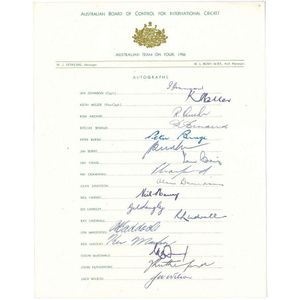 AUSTRALIAN BOARD OF CONTROL FOR INTERNATIONAL CRICKET
AUSTRALIAN TEAM ON TOUR, 1956
AUTOGRAPHS
IAN JOHNSON (Capt.)
KEITH MILLER (Vice-Capt.)
K Miller
RON ARCHER
R. Archer
RICHIE BENAUD
R Benaud
PETER BURGE
Peter Burge
JIM BURKE
IAN CRAIG
Ian Craig
PAT CRAWFORD
ALAN DAVIDSON
Alan Davidson
NEIL HARVEY
Neil Harvey
GIL LANGLEY
Gil Langley
RAY LINDWALL
R Lindwall
LEN MADDOCKS
L Maddocks
KEN MACKAY
Ken Mackay
COLIN McDONALD
JOHN RUTHERFORD
JACK WILSON
J Wilson